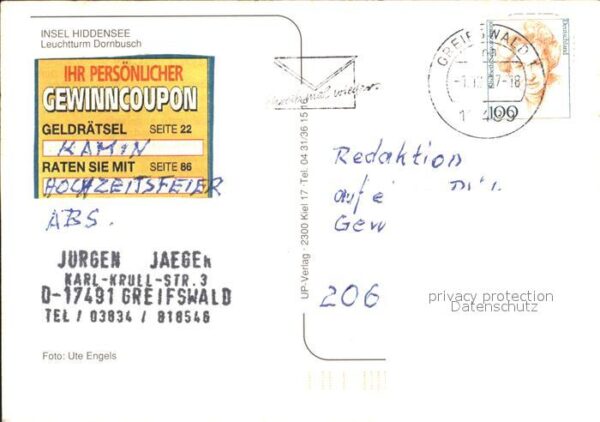 INSEL HIDDENSEE
Leuchtturm Dornbusch
IHR PERSÖNLICHER
GEWINNCOUPON
GELDRÄTSEL SEITE 22
KAMIN
RATEN SIE MIT SEITE 86
HOCHZEITSFEIER
ABS.
JÜRGEN JAEGER
KARL-KRULL-STR. 3
D-17491 GREIFSWALD
TEL / 03834 / 818546
Foto: Ute Engels
UP-Verlag · 2300 Kiel 17 · Tel. 04 31/36 15
GREIFSWALD 1
Deutschland
100
Redaktion
Gew
206
privacy protection
Datenschutz